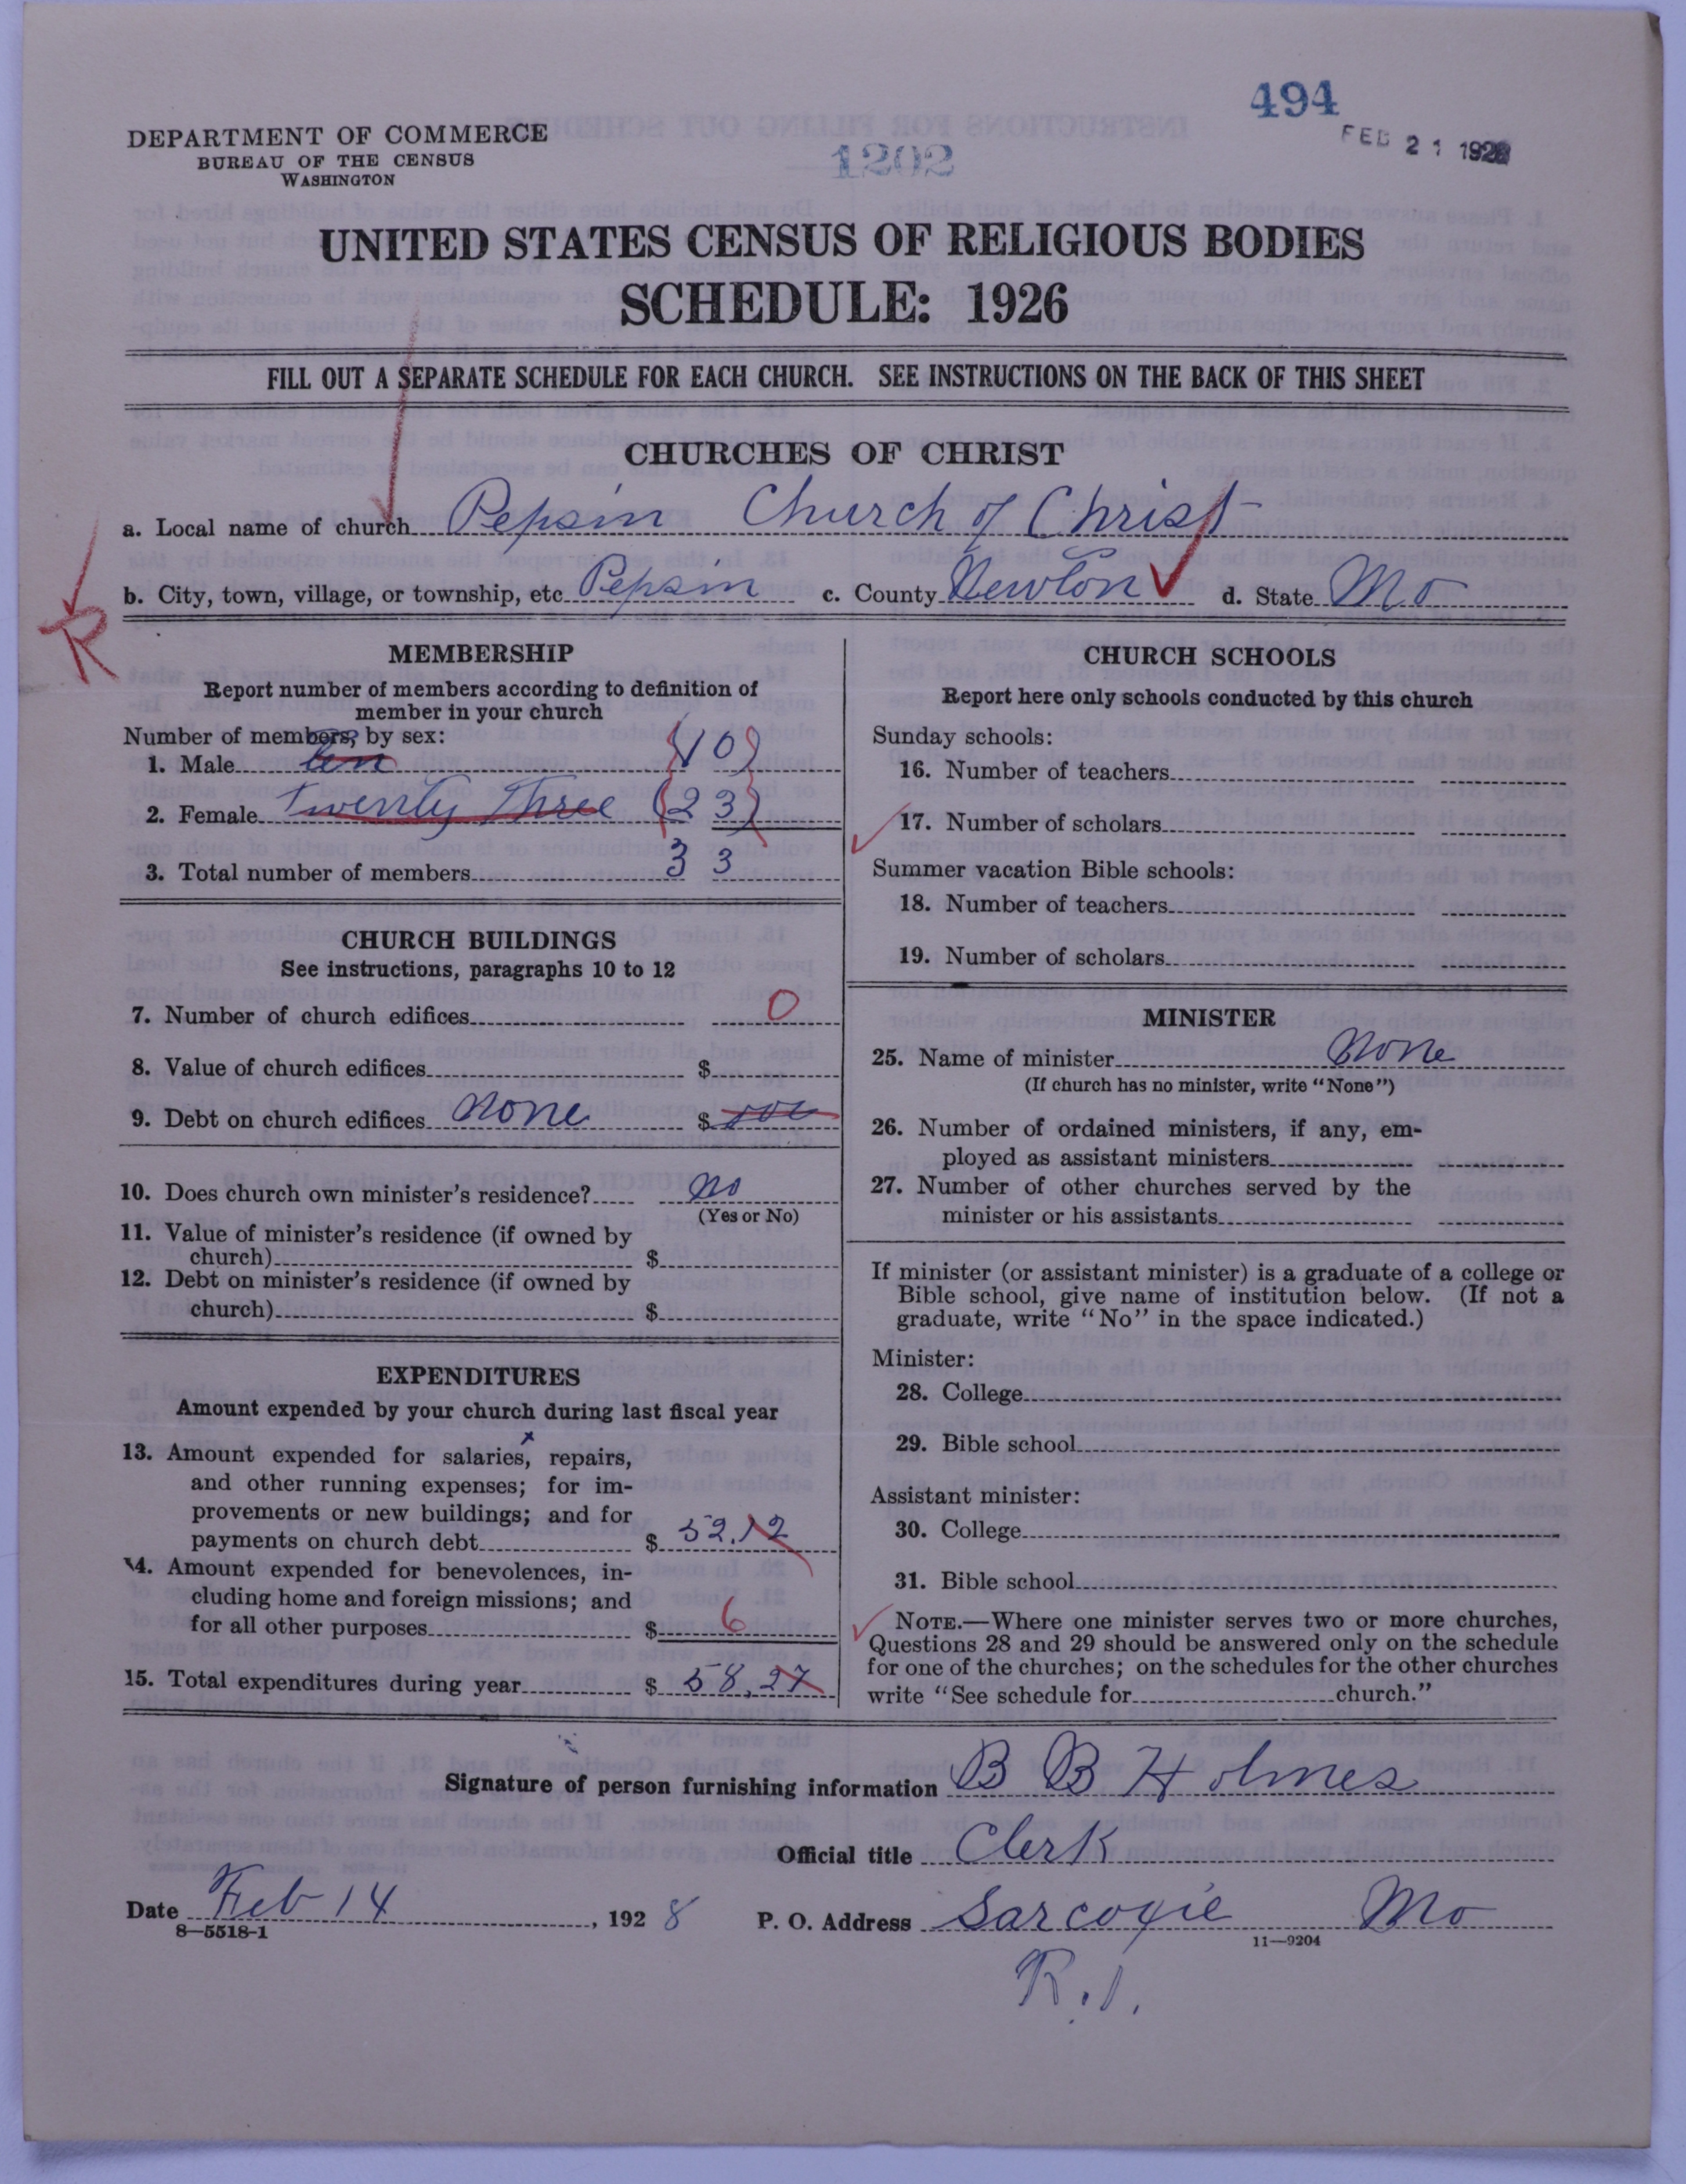 494
FEB 21 1928
1202
DEPARTMENT OF COMMERCE
BUREAU OF THE CENSUS
WASHINGTON
UNITED STATES CENSUS OF RELIGIOUS BODIES
SCHEDULE: 1926
FILL OUT A SEPARATE SCHEDULE FOR EACH CHURCH. SEE INSTRUCTIONS ON THE BACK OF THIS SHEET
CHURCHES OF CHRIST
a. Local name of church Pepsin Church of Christ
b. City, town, village, or township, etc. Pepsin c. County Newton d. State Mo
R
MEMBERSHIP
Report number of members according to definition of
member in your church
Number of members, by sex:
1. Male ten (10)
2. Female Twenty Three (23)
3. Total number of members 33
CHURCH BUILDINGS
See instructions, paragraphs 10 to 12
7. Number of church edifices 0
8. Value of church edifices $
9. Debt on church edifices None $
10. Does church own minister's residence? No
(Yes or No)
11. Value of minister's residence (if owned by
church) $
12. Debt on minister's residence (if owned by
church) $
EXPENDITURES
Amount expended by your church during last fiscal year
13. Amount expended for salaries, repairs,
and other running expenses; for im-
provements or new buildings; and for
payments on church debt $ 52.12
14. Amount expended for benevolences, in-
cluding home and foreign missions; and
for all other purposes $ 6
15. Total expenditures during year $ 58.27
CHURCH SCHOOLS
Report here only schools conducted by this church
Sunday schools:
16. Number of teachers
17. Number of scholars
Summer vacation Bible schools:
18. Number of teachers
19. Number of scholars
MINISTER
25. Name of minister None
(If church has no minister, write "None")
26. Number of ordained ministers, if any, em-
ployed as assistant ministers
27. Number of other churches served by the
minister or his assistants
If minister (or assistant minister) is a graduate of a college or
Bible school, give name of institution below. (If not a
graduate, write "No" in the space indicated.)
Minister:
28. College
29. Bible school
Assistant minister:
30. College
31. Bible school
NOTE.—Where one minister serves two or more churches,
Questions 28 and 29 should be answered only on the schedule
for one of the churches; on the schedules for the other churches
write "See schedule for church."
Signature of person furnishing information B B Holmes
Official title Clerk
Date Feb 14, 1928 P. O. Address Sarcoxie Mo
8—5518-1
11—9204
R.1.